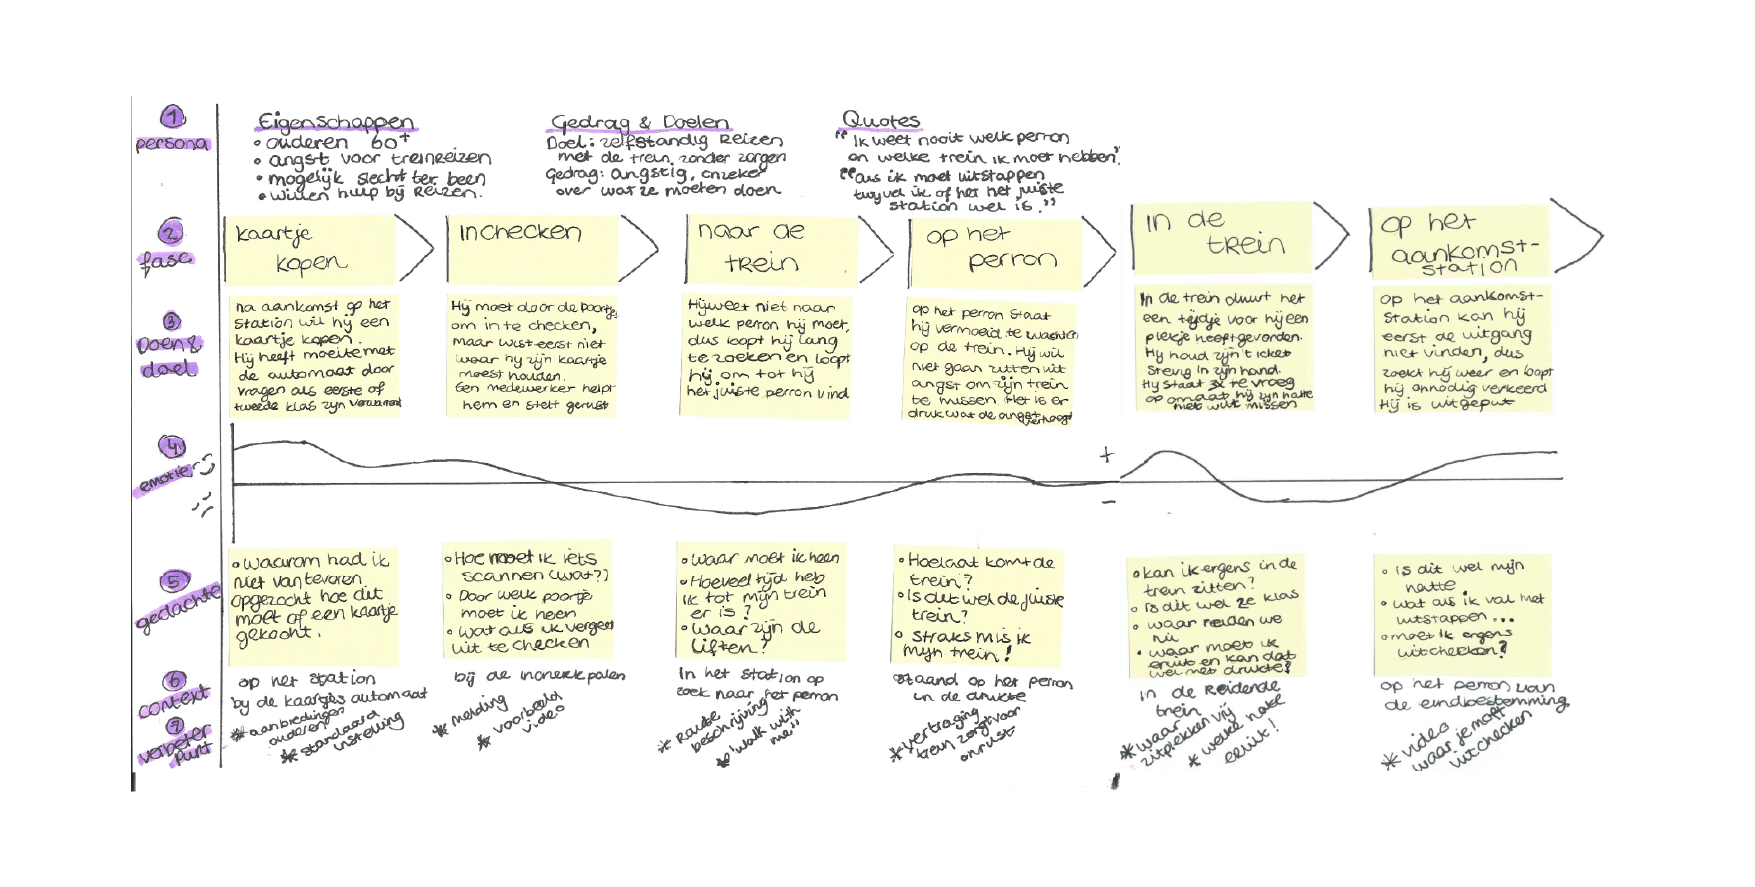 1
persona
Eigenschappen
• ouderen 60+
• angst voor treinreizen
• mogelijk slecht ter been
• willen hulp bij Reizen.
Gedrag & Doelen
Doel: zelfstandig Reizen
met de trein, zonder zorgen
Gedrag: angstig, onzeker
over wat ze moeten doen
Quotes
"Ik weet nooit welk perron
en welke trein ik moet hebben"
"als ik moet uitstappen
twyvel ik of het het juiste
station wel is."
2
fase
kaartje
kopen
Inchecken
naar de
trein
op het
perron
In de
trein
op het
aankomst-
station
3
Doen &
doel
na aankomst op het
Station wil hij een
kaartje kopen.
Hij heeft moeite met
de automaat door
vragen als eeste of
tweede klas zijn verwarrend
Hij moet door de poortjes
om in te checken,
maar wist eerst niet
waar hij zijn kaartje
moest houden.
Een medewerker helpt
hem en stelt gerust
Hij weet niet naar
welk perron hij moet,
dus loopt hij lang
te zoeken en loopt
hij om tot hij
het juiste perron vind
op het perron staat
hij vermoeid te wachten
op de trein. Hij wil
niet gaan zitten uit
angst om zijn trein
te missen. Het is er
druk wat de angst verhoogt
In de trein duurt het
een tijdje voor hij een
plekje heeft gevonden.
Hij houd zijn ticket
stevig in zijn hand.
Hij staat te vroeg
op omdat hij zijn halte
niet wilt missen
op het aankomst-
Station kan hij
eerst de uitgang
niet vinden, dus
zoekt hij weer en loopt
hij onnodig verkeerd
Hij is uitgeput
4
emotie
+
-
5
gedachte
• waarom had ik
niet van tevoren
opgezocht hoe dit
moet of een kaartje
gekocht.
• Hoe moet ik iets
scannen (wat?)
• Door welk poortje
moet ik heen
• wat als ik vergeet
uit te checken
• Waar moet ik heen
• Hoeveel tijd heb
ik tot mijn trein
er is?
• Waar zijn de
liften?
• Hoelaat komt de
trein?
• Is dit wel de juiste
trein?
• Straks mis ik
mijn trein!
• kan ik ergens in de
trein zitten?
• is dit wel 2e klas
• waar reiden we
nu
• waar moet ik
eruit en kan dat
wel met drukte?
• Is dit wel mijn
halte
• wat als ik val met
uitstappen...
• moet ik ergens
uitchecken?
6
context
op het station
bij de kaartjes automaat
bij de incheckpalen
In het station op
zoek naar het perron
staand op het perron
in de drukte
in de Reidende
trein
op het perron van
de eindbestemming
7
verbeter
punt
* aanbiedingen
ouderen
* standaard
instelling
* melding
* voorbeeld
video
* Route
beschrijving
* "walk with
me"
* vertraging
trein zorgt voor
onrust
* waar
zitplekken vrij
* welke halte
eruit!
* video
waar je moet
uitchecken